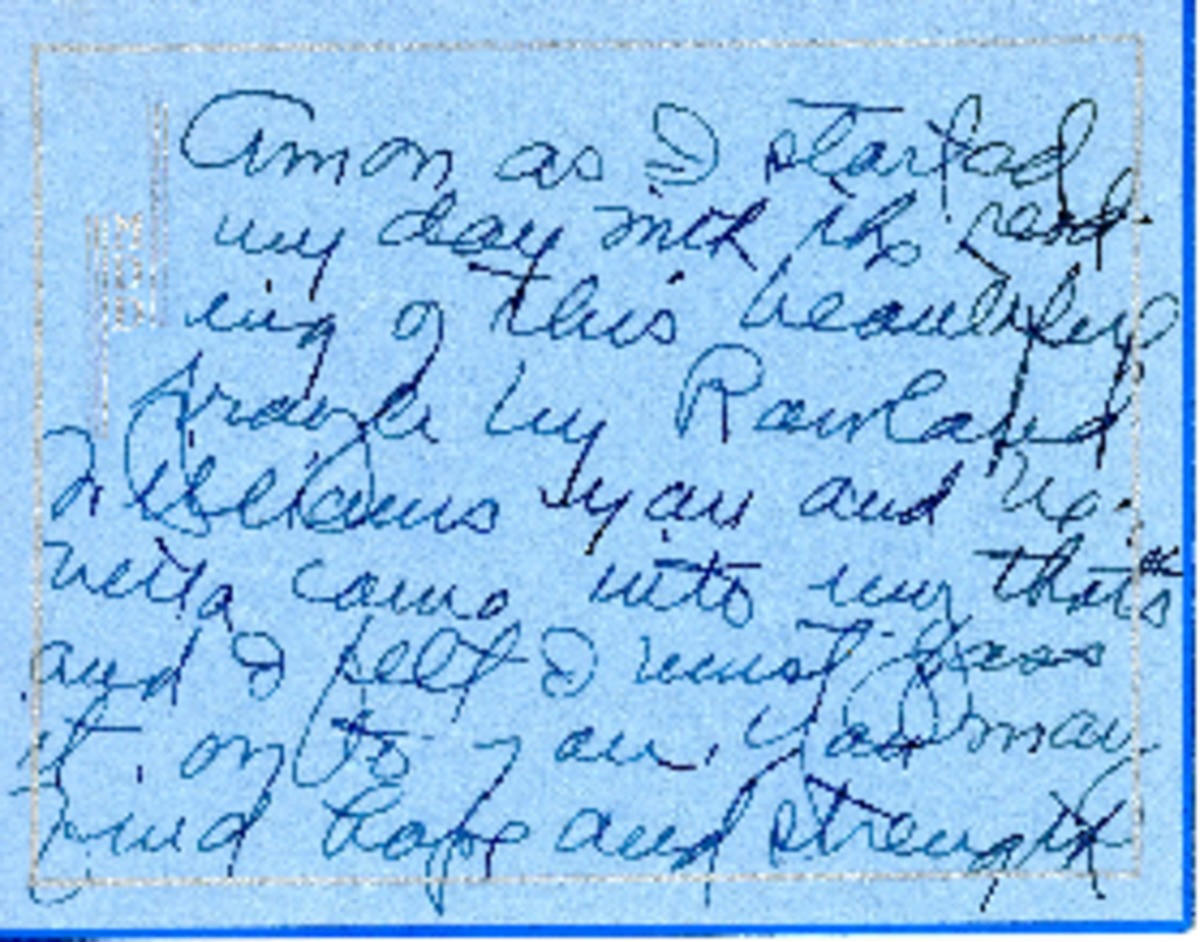 Amon as I started
my day with the read-
ing of this beautiful
prayer by Rowland
Williams you and Ne-
netta came into my thots
and I felt I must pass
it on to you. You may
find hope and strength